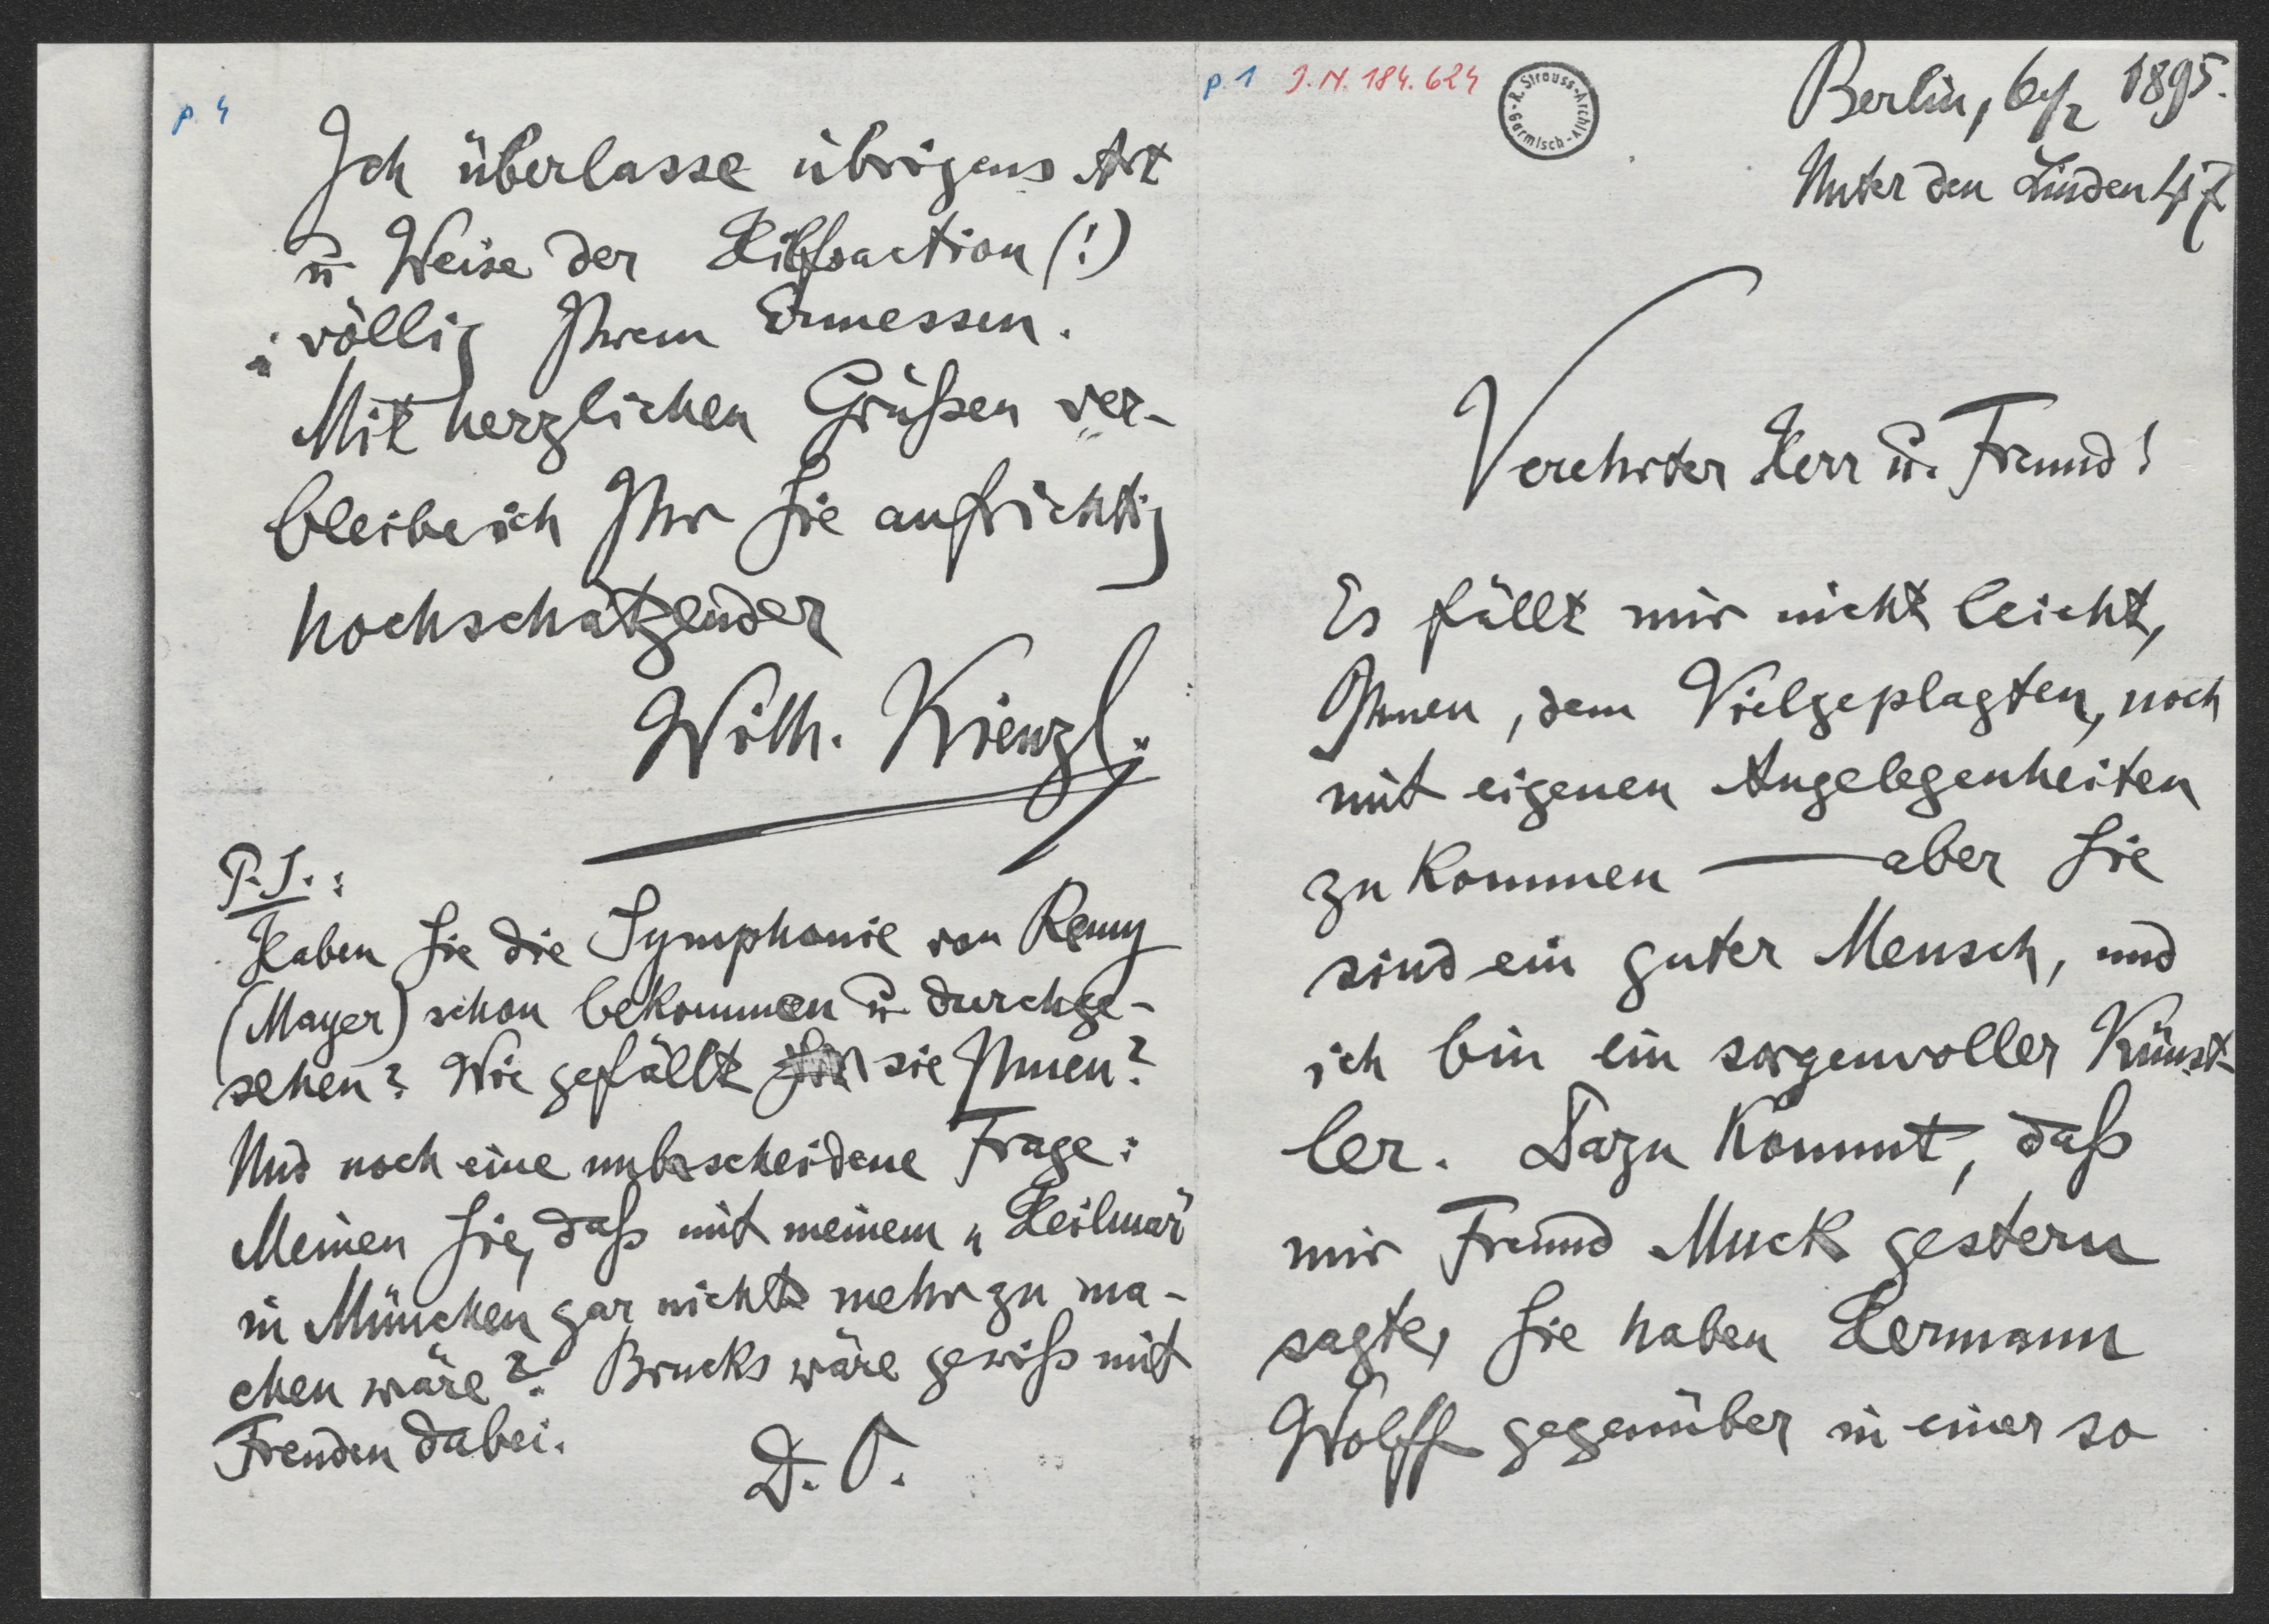 p. 4
Ich überlasse übrigens Art
u. Weise der Hilfsaction (!)
völlig Ihrem Ermessen.
Mit herzlichen Grüßen ver-
bleibe ich Ihr Sie aufrichtig
hochschätzender
Wilh. Kienzl.
P.S.:
Haben Sie die Symphonie von Remy
(Mayer) schon bekommen u. durchge-
sehen? Wie gefällt sie Ihnen?
Und noch eine unbescheidene Frage:
Meinen Sie, daß mit meinem „Heilmar"
in München gar nichts mehr zu ma-
chen wäre? Brucks wäre gewiß mit
Freuden dabei.
D. O.
p. 1 J.N. 184.624
R. Strauss-Archiv-Garmisch-
Berlin, 6/2 1895.
Unter den Linden 47
Verehrter Herr u. Freund!
Es fällt mir nicht leicht,
Ihnen, dem Vielgeplagten, noch
mit eigenen Angelegenheiten
zu kommen — aber Sie
sind ein guter Mensch, und
ich bin ein sorgenvoller Künst-
ler. Dazu kommt, daß
mir Freund Muck gestern
sagte, Sie haben Hermann
Wolff gegenüber in einer so